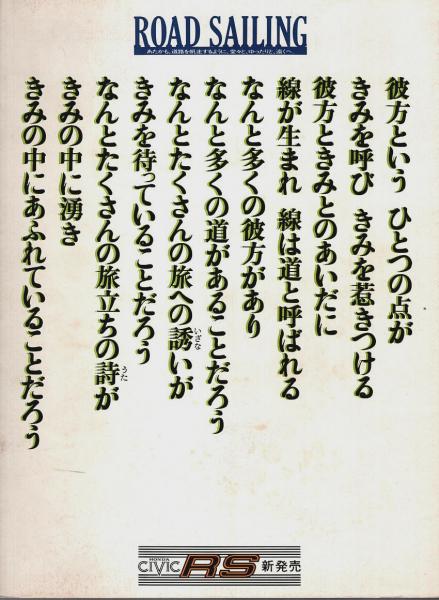 ROAD SAILING
あたかも、道路を帆走するように、堂々と、ゆったりと、遠くへ。
彼方という　ひとつの点が
きみを呼び　きみを惹きつける
彼方ときみとのあいだに
線が生まれ　線は道と呼ばれる
なんと多くの彼方があり
なんと多くの道があることだろう
なんとたくさんの旅への誘いが
いざな
きみを待っていることだろう
なんとたくさんの旅立ちの詩が
うた
きみの中に湧き
きみの中にあふれていることだろう
HONDA
CIVIC RS 新発売